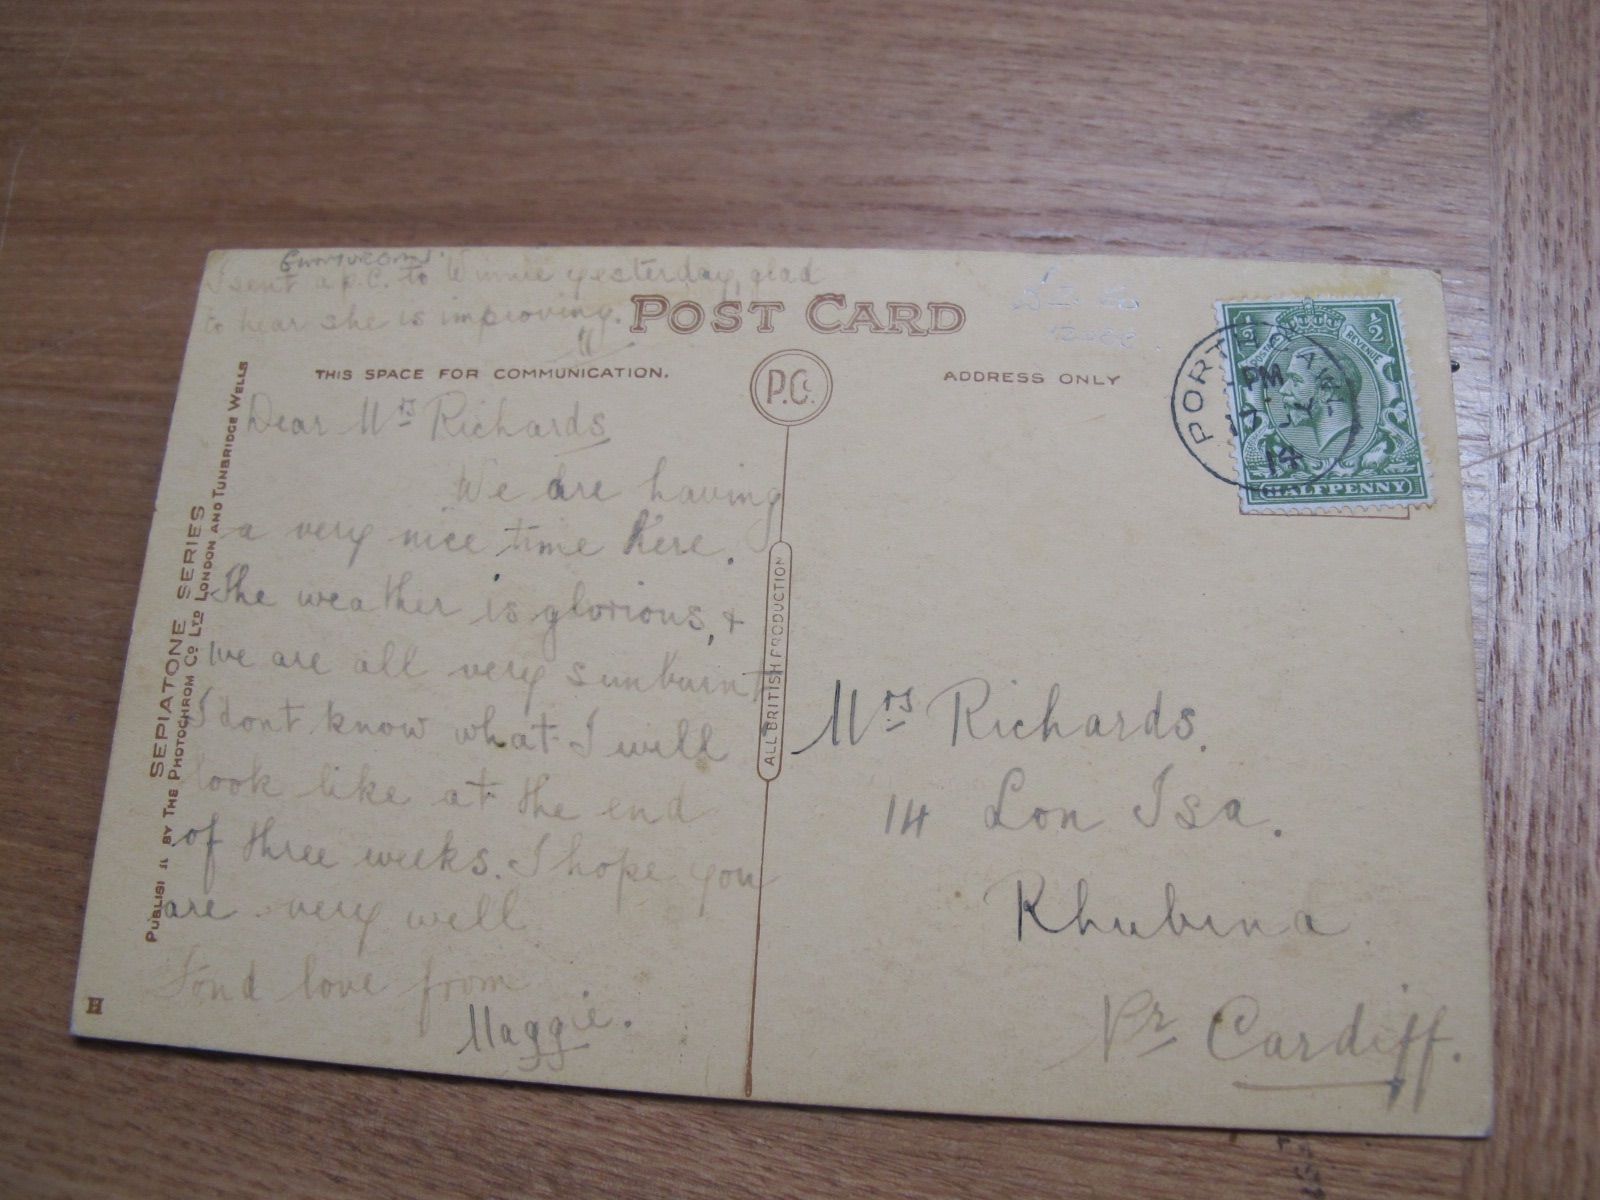 I sent a p.c. to Winnie yesterday, glad
to hear she is improving.
POST CARD
THIS SPACE FOR COMMUNICATION.
P.C.
ADDRESS ONLY
Dear Mrs Richards
We are having
a very nice time here.
The weather is glorious, +
we are all very sunburnt
I dont know what I will
look like at the end
of three weeks. I hope you
are very well
Fond love from
Maggie.
SEPIATONE SERIES
PUBLISHED BY THE PHOTOCHROM CO LTD LONDON AND TUNBRIDGE WELLS
H
ALL BRITISH PRODUCTION
Mrs Richards.
14 Lon Isa.
Rhubina
Nr Cardiff.
PM
JY
14
1/2 POSTAGE REVENUE 1/2
HALFPENNY